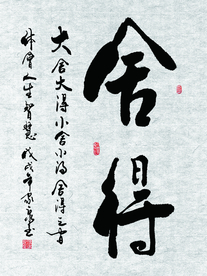 舍得
大舍大得小舍小得舍得之间
体会人生智慧戊戌年